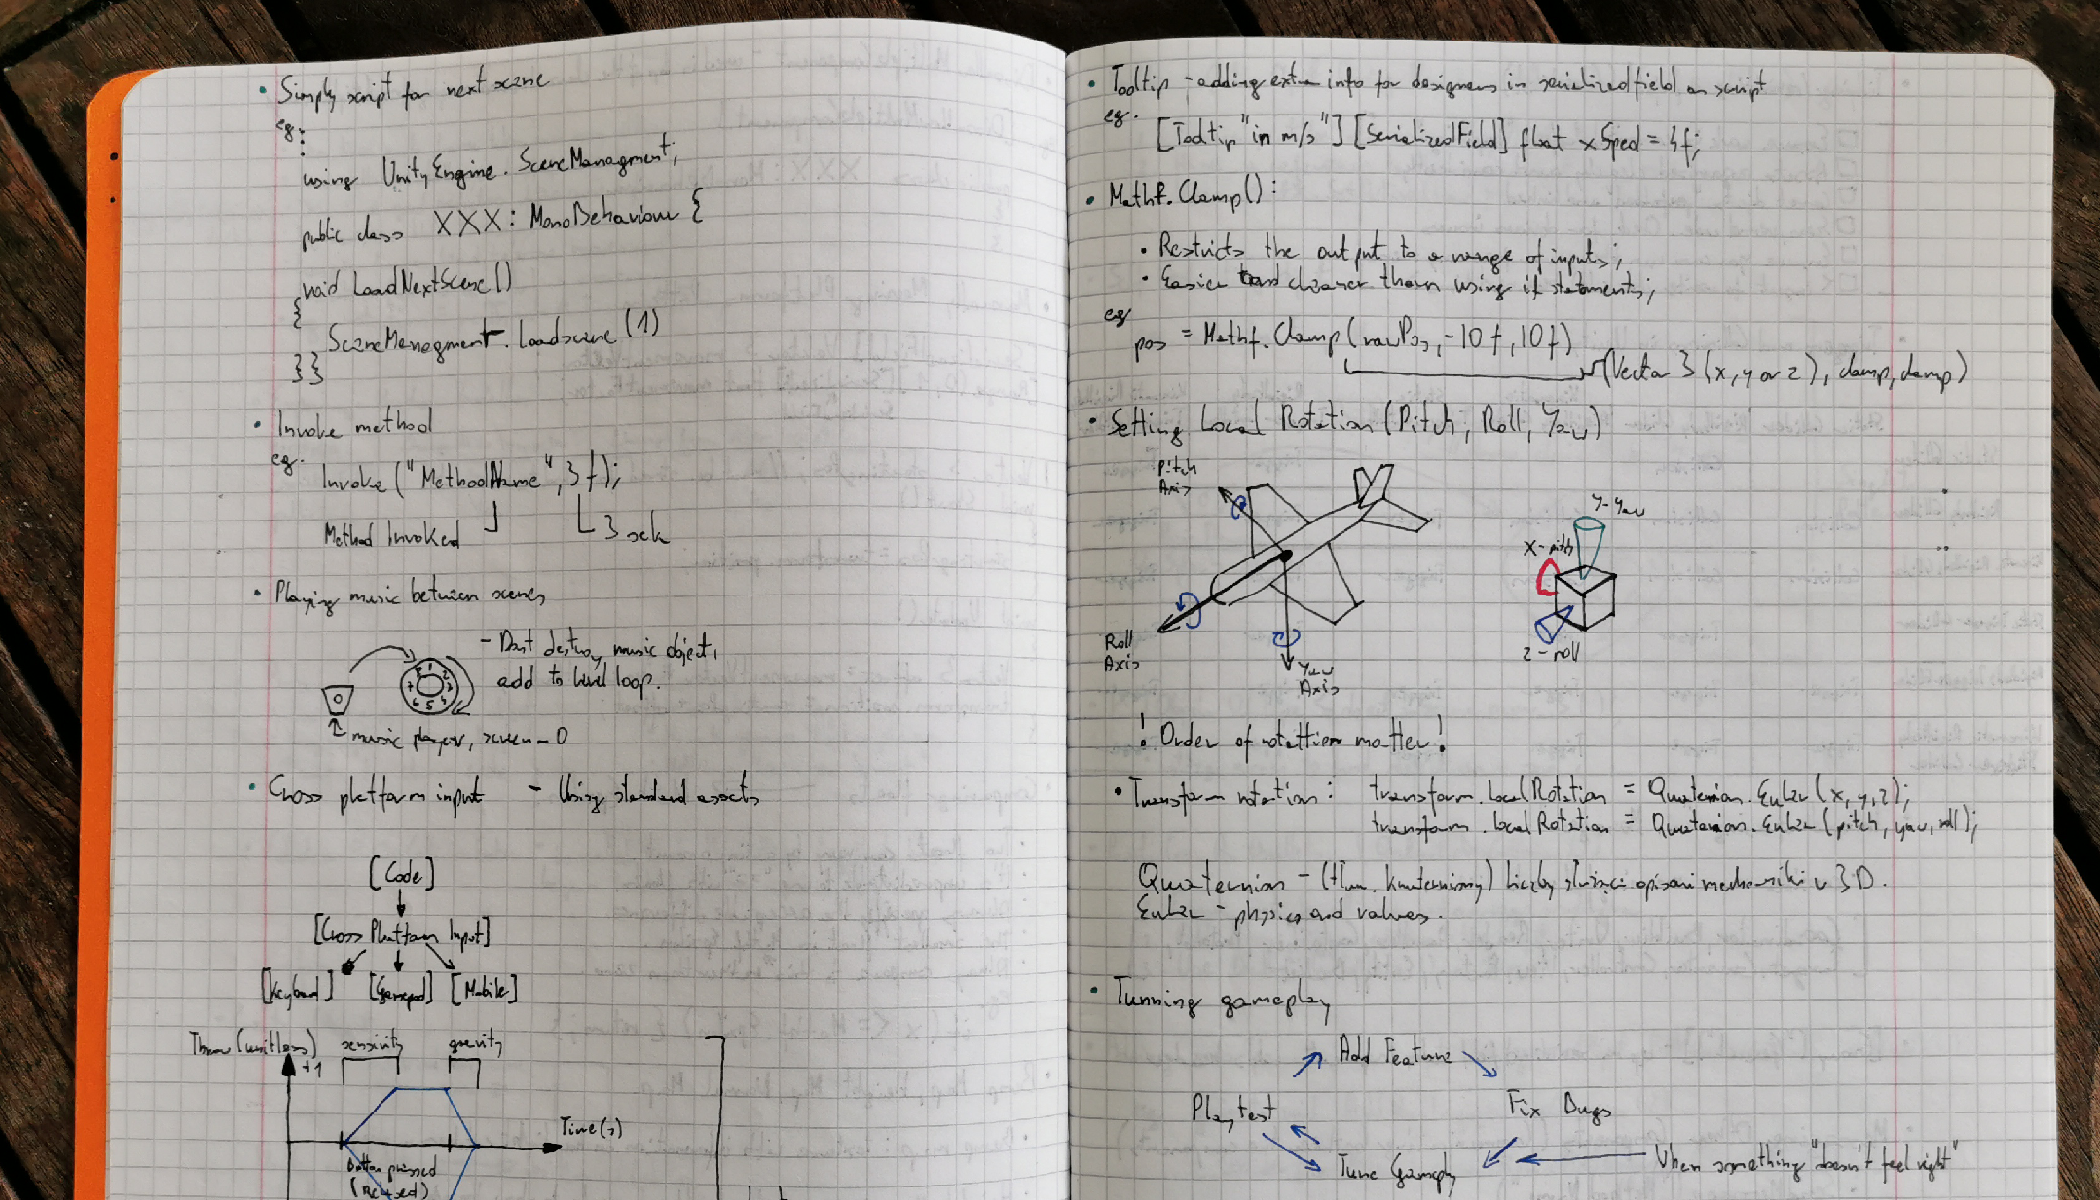 • Simply script for next scene
eg:
using UnityEngine.SceneManagment;
public class XXX: MonoBehaviour {
void LoadNextScene()
{
SceneManagment.Loadscene(1)
}}
• Invoke method
eg.
Invoke ("MethodName", 3f);
Method Invoked
3 sek
• Playing music between scenes
- Dont destroy music object,
add to level loop.
0
1 2 3 4 5 6 7
music player, screen - 0
• Cross platform input - Using standard assets
[Code]
[Cross Platform Input]
[Keyboard] [Gamepad] [Mobile]
Throw (unitless) sensivity gravity
+1
Time(s)
Button pressed
(Relesed)
• Tooltip - adding extra info for designers in serializedfield on script
eg.
[Tooltip "in m/s"] [SerializedField] float xSped = 4f;
• Mathf.Clamp():
• Restricts the output to a range of inputs;
• Easier and cleaner than using if statements;
eg
pos = Mathf.Clamp(rawPos, -10f, 10f)
(Vector 3 (x, y or z), clamp, clamp)
• Setting Local Rotation (Pitch, Roll, Yaw)
Pitch
Axis
Y-Yaw
X-pitch
Roll
Axis
Yaw
Axis
Z-roll
! Order of rotattion matter!
• Transform rotation: transform.localRotation = Quaternion.Euler(x, y, z);
transform.localRotation = Quaternion.Euler(pitch, yaw, roll);
Quaternion - (tłum. kwaterniony) liczby służące opisani mechaniki w 3D.
Euler - physics and values.
• Tunning gameplay
Add Feature
Playtest
Fix Bugs
Tune Gameply
When something "doesn't feel right"